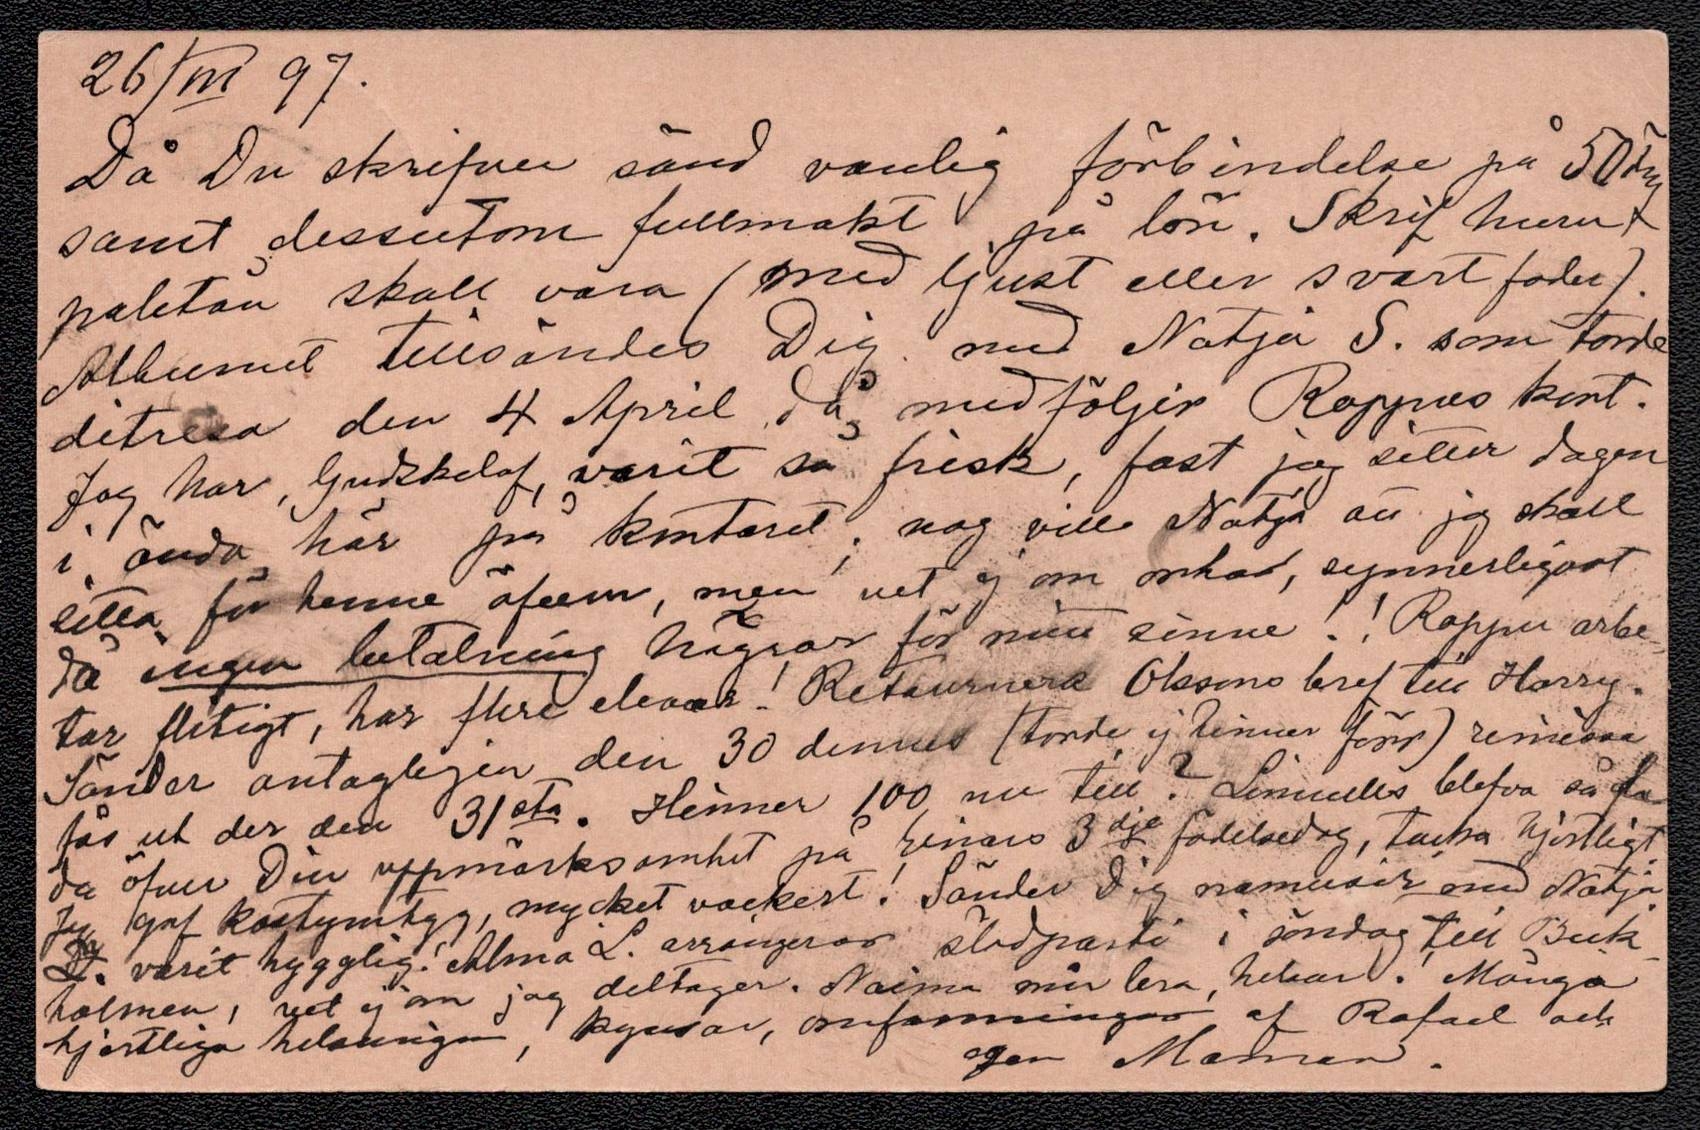 26/III 97.
Då Du skrifver sänd vanlig förbindelse på 50
samt dessutom fullmakt på lön. Skrif huru
paletån skall vara (med ljust eller svart foder).
Albumet tillsändes Dig med Natja S. som torde
ditresa den 4 April, då medföljer Roppus kort.
Jag har, Gudskelof, varit så frisk, fast jag sitter dagen
i ända här på kontoret; nog ville Natja att jag skall
sitta för henne äfven, men vet ej om orkar, synnerligast
då ingen betalning hägrar för mitt sinne!! Roppu arbe-
tar flitigt, har flere elever! Retournera Olssons bref till Harry.
Sänder antagligen den 30 dennes (torde ej hinner förr) remissa
fås ut der den 31sta. Hinner 100 nu till? Linnells blefvo så gla-
da öfver Din uppmärksamhet på Einars 3dje födelsedag, tacka hjertligt
Jag gaf kostymtyg, mycket vackert! Sänder Dig med Natja
St. varit hygglig! Alma L. arrangerar slädparti i söndag till Bock-
holmen, vet ej om jag deltager. Naima mår bra, helsar! Många
hjertliga helsningar, kyssar, omfamningar af Rafael och
egen Maman.